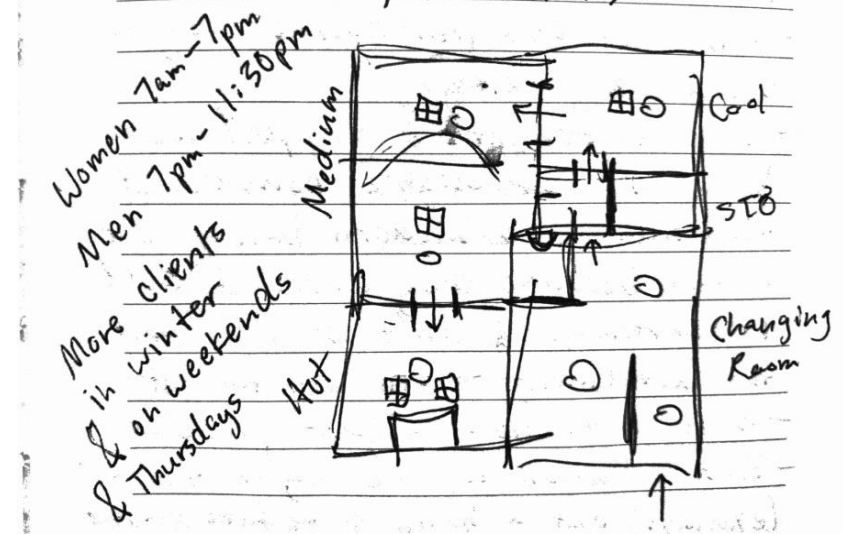 Women 7am-7pm
Men 7pm-11:30pm
More clients
in winter
& on weekends
& Thursdays
Medium
Hot
Cool
STO
Changing
Room